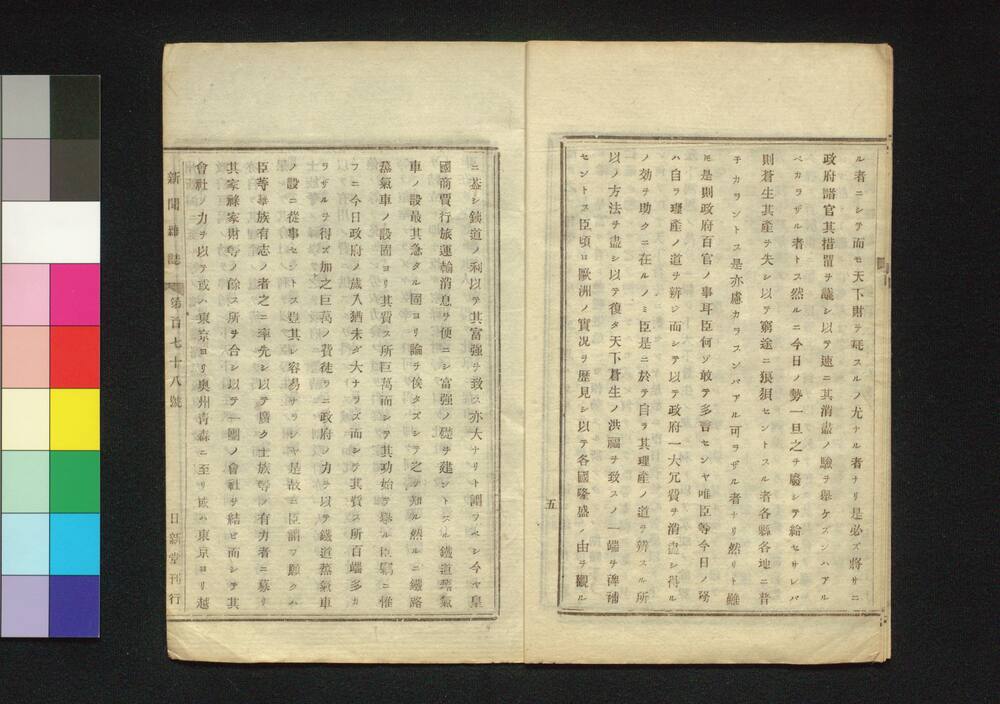 ル者ニシテ而モ天下財ヲ耗スルノ尤ナル者ナリ是必ズ將サニ
政府諸官其措置ヲ議シ以テ速ニ其消盡ノ驗ヲ擧ケズンハアル
ベカラザル者トス然ルニ今日ノ勢一旦之ヲ廢シテ給セサレバ
則蒼生其產ヲ失シ以テ窮途ニ狼狽セントスル者各縣各地ニ普
チカラントス是亦慮カラスンバアル可ラザル者ナリ然リト雖
𪜈是則政府百官ノ事耳臣何ゾ敢テ多言センヤ唯臣等今日ノ務
ハ自ラ理產ノ道ヲ辨ジ而シテ以テ政府一大冗費ヲ消盡シ得ル
ノ効ヲ助クニ在ルノミ臣是ニ於テ自ラ其理產ノ道ヲ辨スル所
以ノ方法ヲ盡シ以テ復タ天下蒼生ノ洪福ヲ致スノ一端ヲ裨補
セントス臣頃ロ歐洲ノ實況ヲ歷見シ以テ各國隆盛ノ由ヲ觀ル
五
ニ基シ鐵道ノ利以テ其富强ヲ致ス亦大ナリト謂フベシ今ヤ皇
國商賈行旅運輸消息ヲ便ニシ富强ノ礎ヲ建ントスル鐵道蒸氣
車ノ設最其急タル固ヨリ論ヲ俟タズシテ之ヲ知ル然ルニ鐵路
蒸氣車ノ設固ヨリ其費ス所巨萬而シテ其功始テ擧ル臣竊ニ惟
フニ今日政府ノ歲入猶未ダ大ナラズ而シテ其費ス所百端多カ
ラザルヲ得ズ加之巨萬ノ費徒ラニ政府ノ力ヲ以テ鐵道蒸氣車
ノ設ニ從事セントス豈其レ容易ナランヤ是故ニ臣謂フ願クハ
臣等華族有志ノ者之ニ率先シ以テ廣ク士族等ノ有力者ニ募リ
其家祿家財等ノ餘ス所ヲ合シ以テ一團ノ會社ヲ結ビ而シテ其
會社ノ力ヲ以テ或ハ東京ヨリ奧州靑森ニ至リ或ハ東京ヨリ越
新聞雜誌　第百七十八號　日新堂刊行